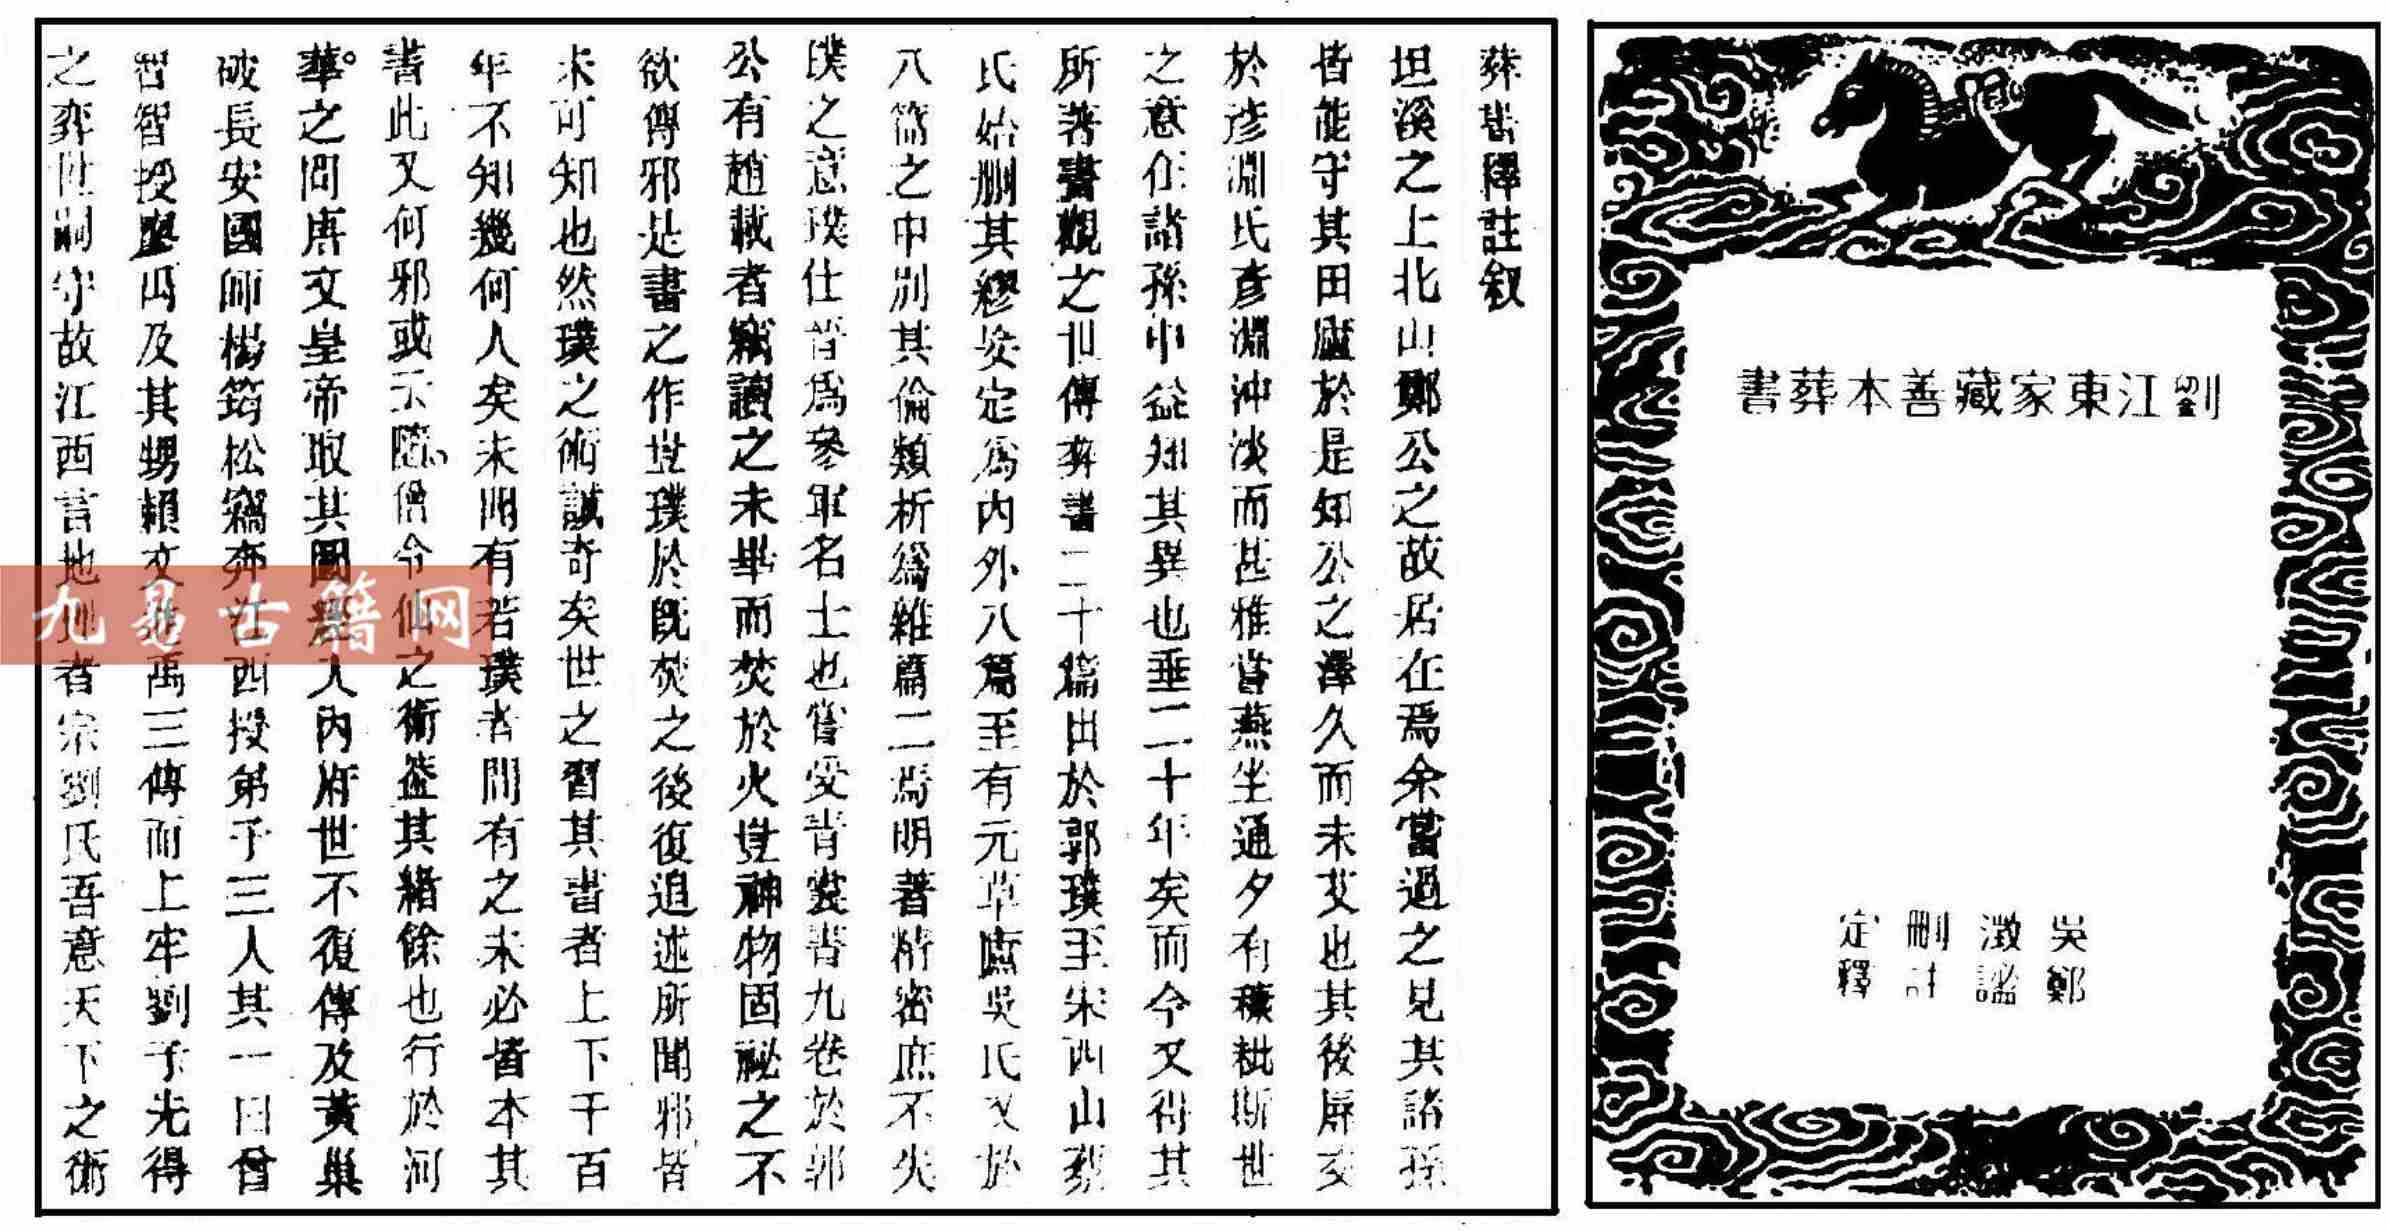 劉江東家藏善本葬書
吳澂刪定
鄭謐註釋
葬書釋註叙
坦溪之上北山鄭公之故居在焉余嘗過之見其諸孫
皆能守其田廬於是知公之澤久而未艾也其後屏交
於彥淵氏彥淵沖淡而甚雅嘗燕坐通夕有穅粃斯世
之意在諸孫中益知其異也垂二十年矣而今又得其
所著書觀之世傳葬書二十篇出於郭璞至宋西山蔡
氏始刪其繆妄定為內外八篇至有元草廬吳氏又於
八篇之中別其倫類析爲雜篇二焉明著精密庶不失
璞之意璞仕晉爲參軍名士也嘗受青囊書九卷於郭
公有趙載者竊讀之未畢而焚於火豈神物固祕之不
欲傳邪是書之作豈璞於旣焚之後復追述所聞邪皆
未可知也然璞之術誠奇矣世之習其書者上下千百
年不知幾何人矣未聞有若璞者間有之未必皆本其
書此又何邪或示陋僧令仙之術葢其緒餘也行於河
華之間唐文皇帝取其圖歷入內府世不復傳及黃巢
破長安國師楊筠松竊奔江西授弟子三人其一曰曾
智智授廖瑀及其甥賴文禹三傳而上牢劉子先得
之弈世嗣守故江西言地理者宗劉氏吾意天下之術
九易古籍网